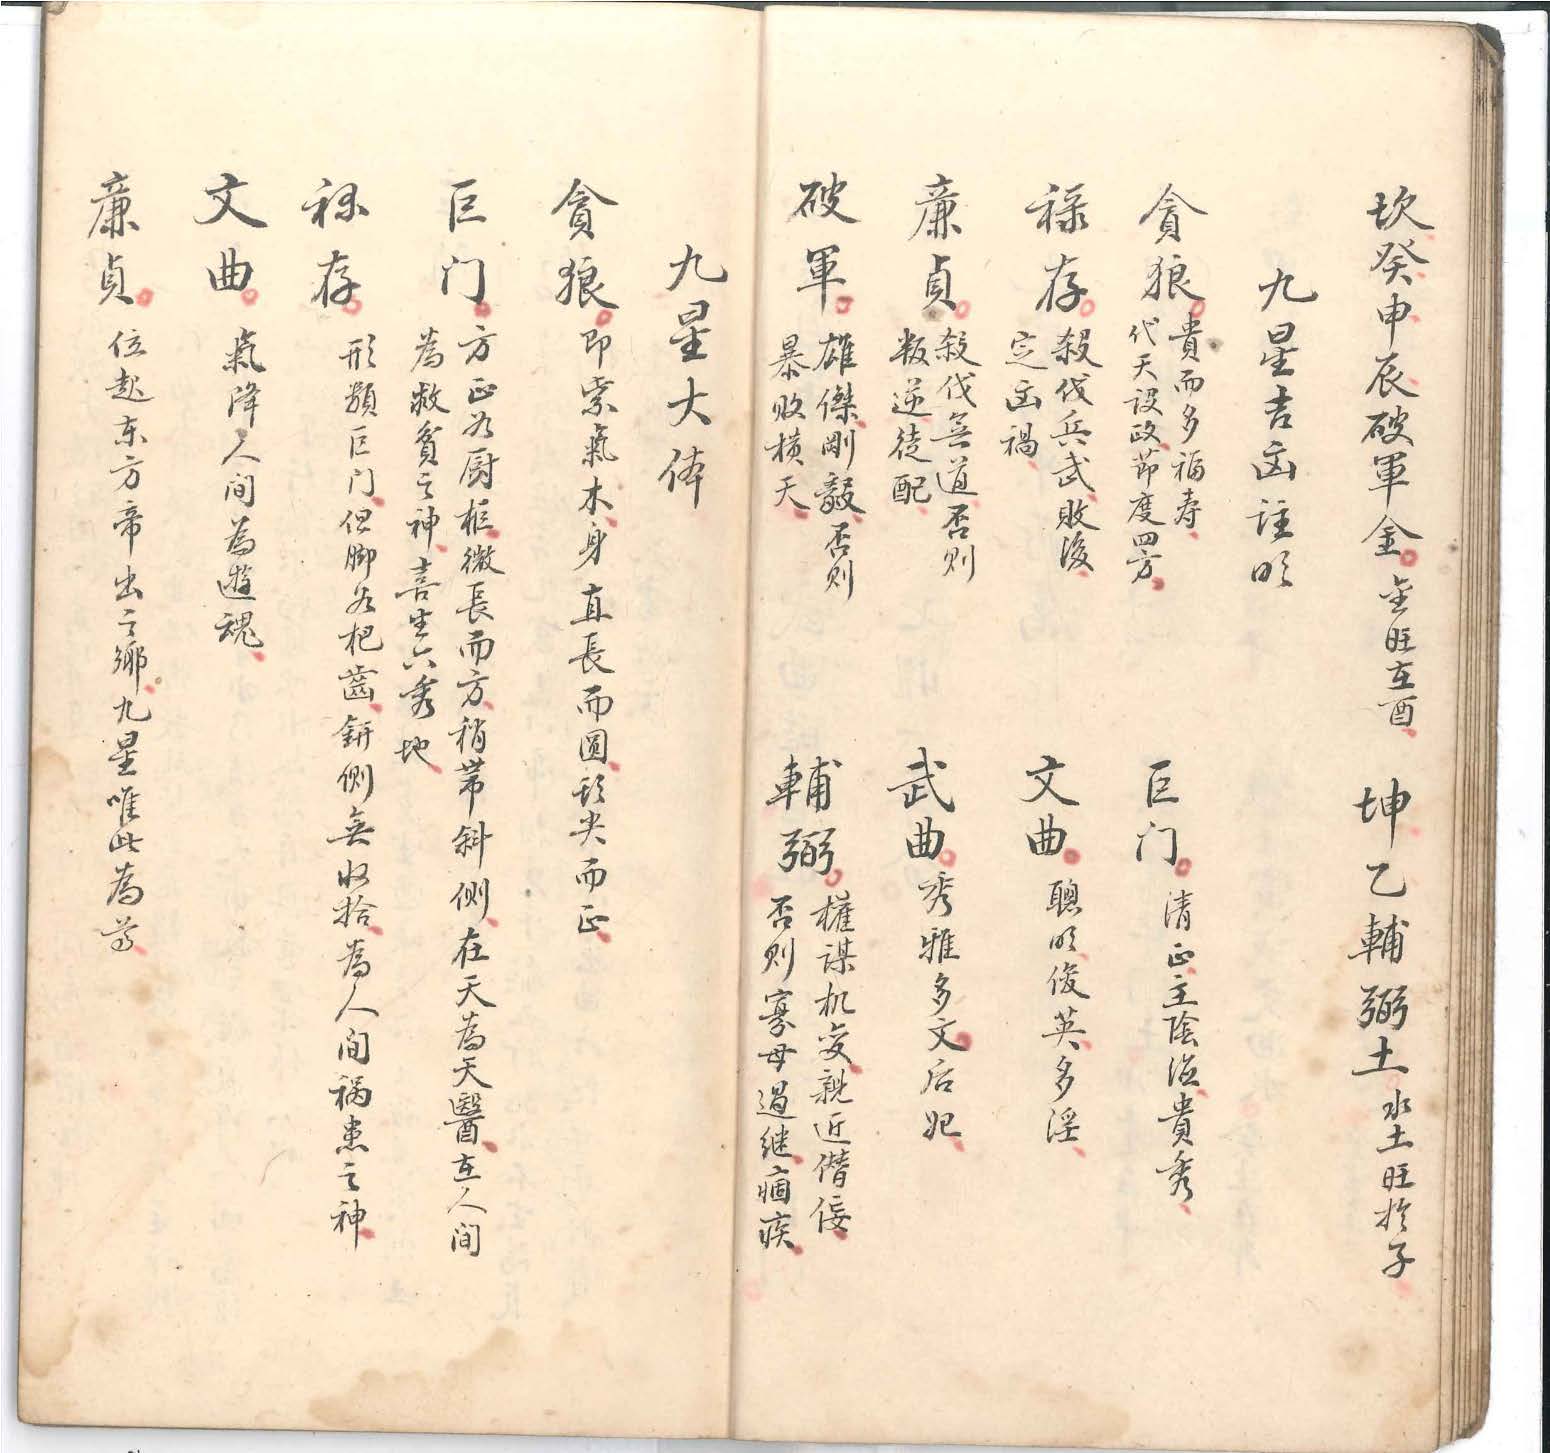 坎癸申辰破軍金 金旺在酉 坤乙輔弼土 水土旺於子
九星吉凶註明
貪狼 貴而多福壽
代天設政節度四方
巨门 清正主陰 貴秀
祿存 殺伐兵武敗後
定凶禍
文曲 聰明俊英多淫
廉貞 殺伐無道否则
叛逆徒配
武曲 秀雅多文后妃
破軍 雄傑剛毅否则
暴敗横夭
輔弼 權謀机变親近僭佞
否则寡母過继痼疾
九星大体
貪狼 即紫氣木身直長而圆頭尖而正
巨门 方正若厨柜微長而方稍带斜侧在天為天醫在人间
為救貧之神喜坐六秀地
祿存 形類巨门但脚若杷齒 侧無收拾為人间祸患之神
文曲 氣降人间為遊魂
廉貞 位起东方帝出之鄉九星唯此為尊